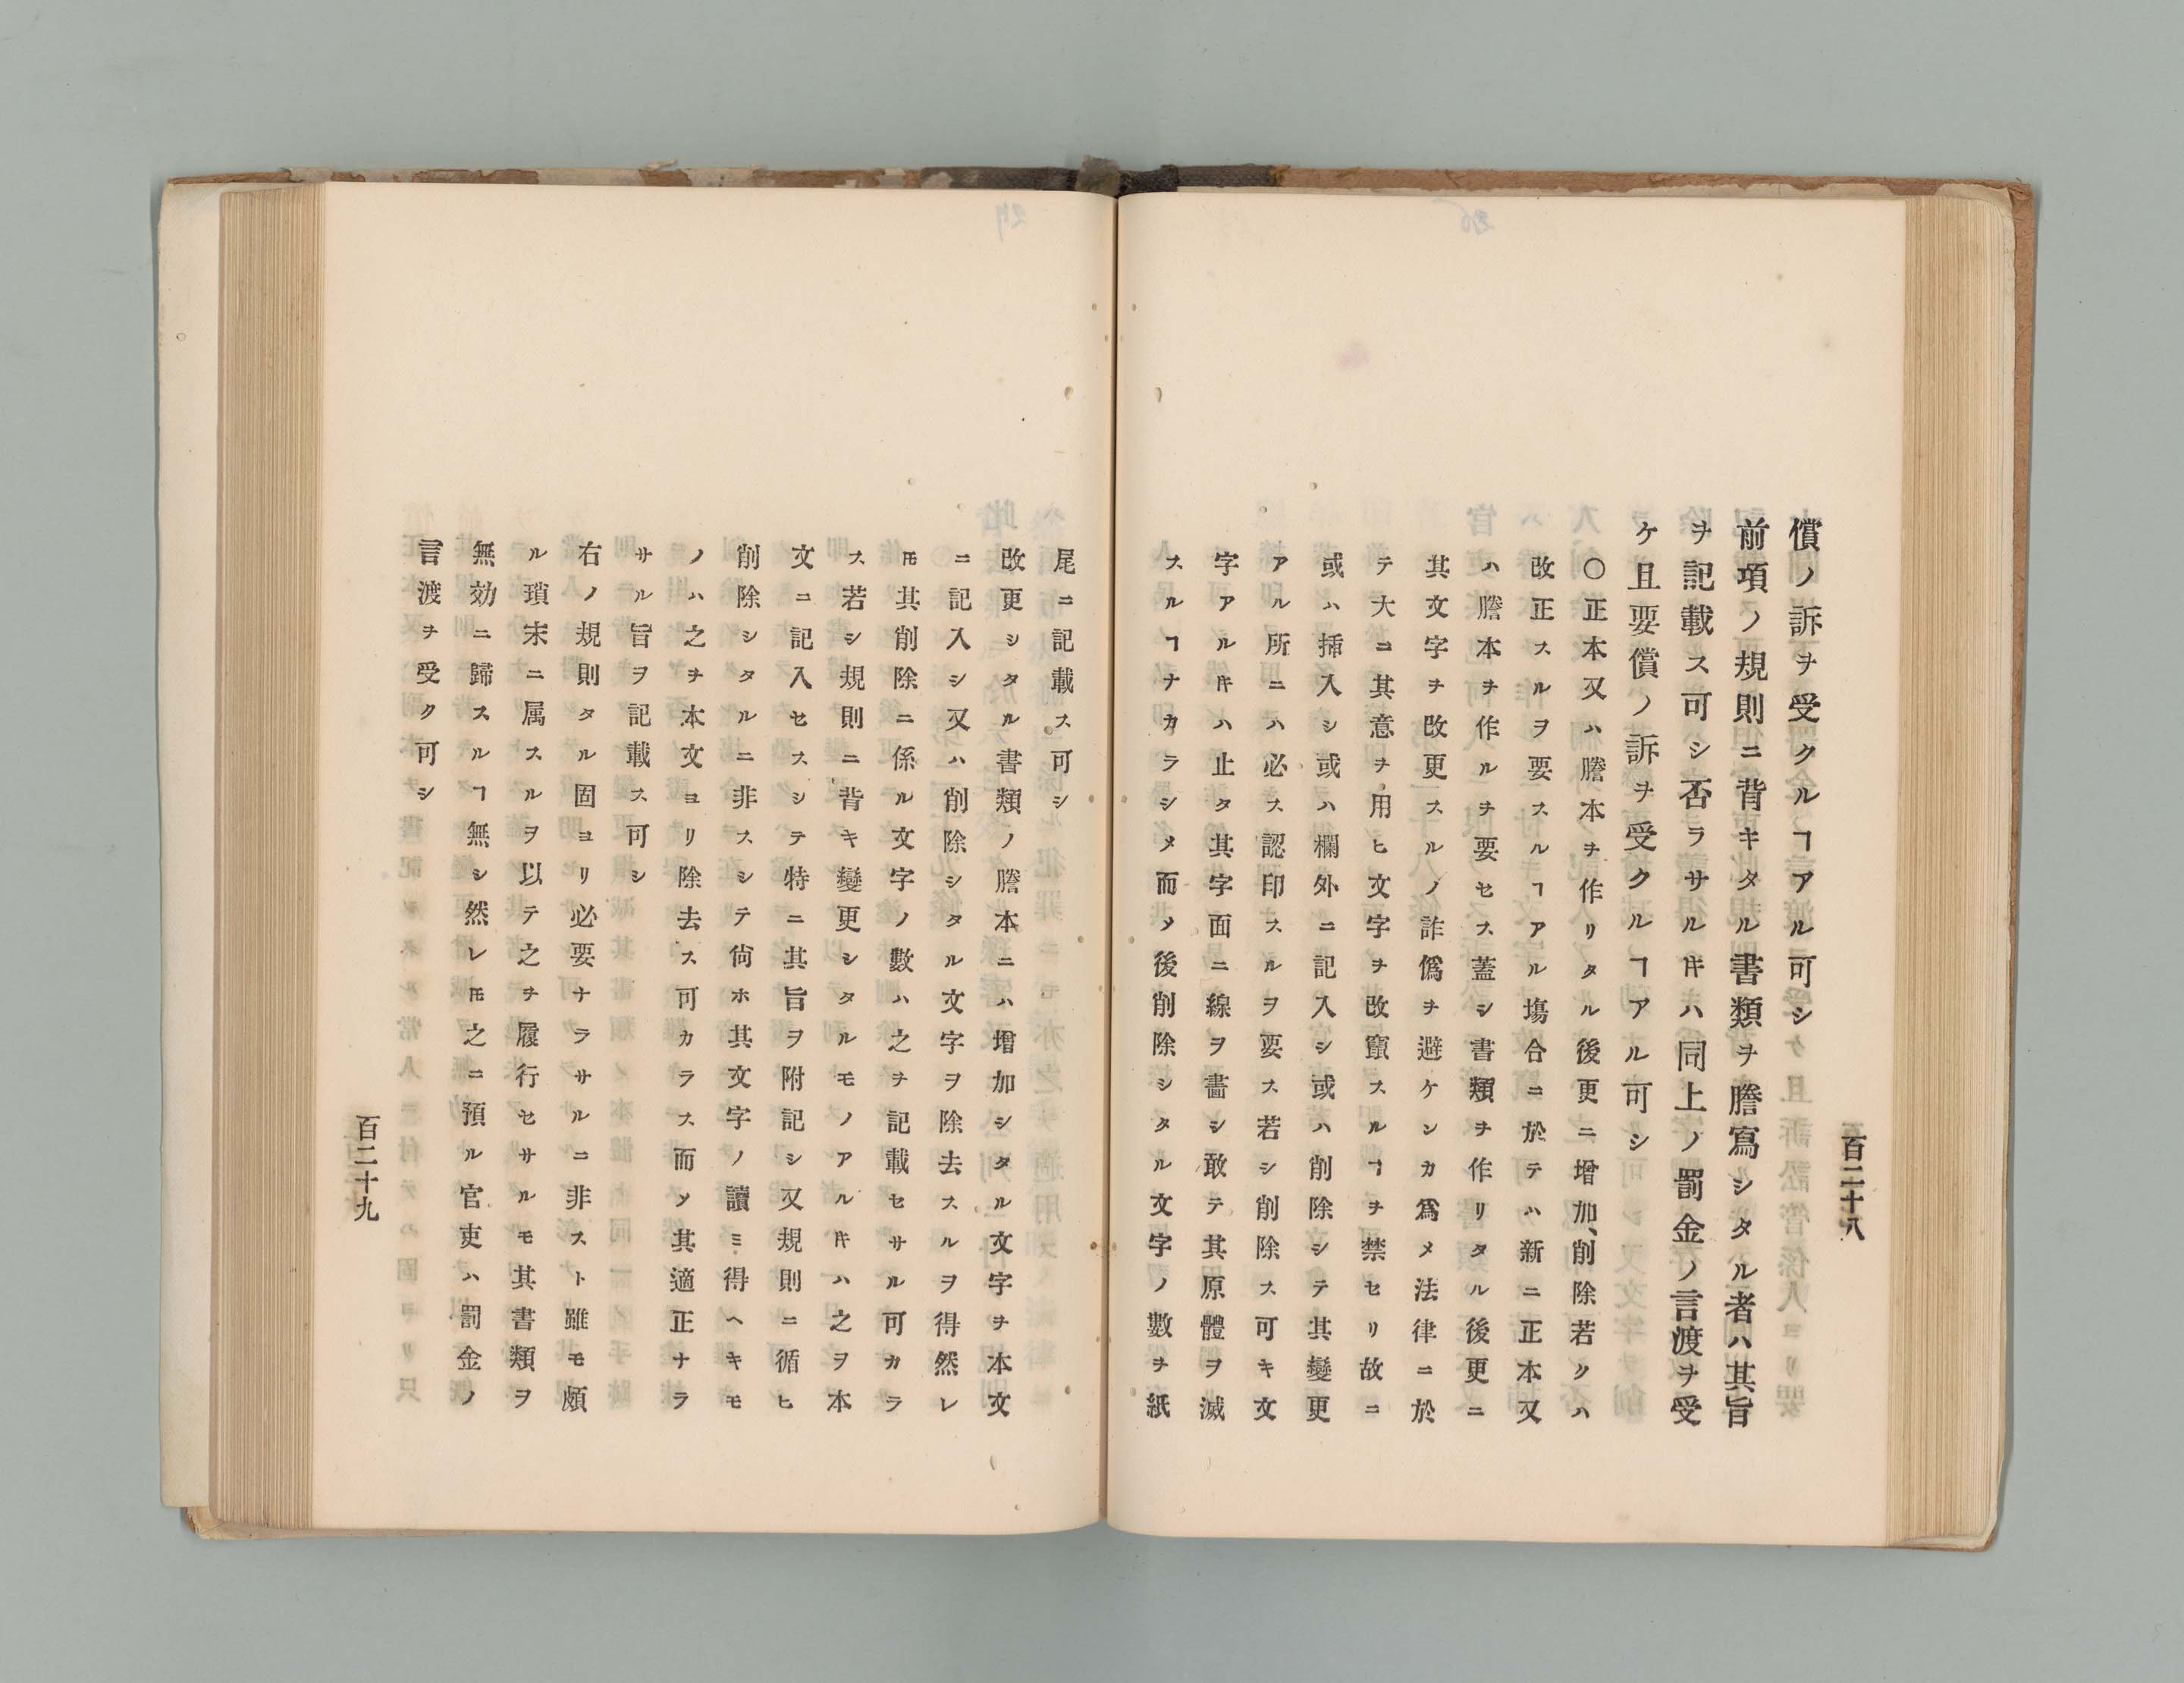 百二十八
償ノ訴ヲ受クルヿアル可シ
前項ノ規則ニ背キタル書類ヲ謄寫シタル者ハ其旨
ヲ記載ス可シ否ラサル𪜈ハ同上ノ罰金ノ言渡ヲ受
ケ且要償ノ訴ヲ受クルヿアル可シ
〇正本又ハ謄本ヲ作リタル後更ニ增加、削除若クハ
改正スルヲ要スルヿアル塲合ニ於テハ新ニ正本又
ハ謄本ヲ作ルヲ要セス蓋シ書類ヲ作リタル後更ニ
其文字ヲ改更スルノ詐僞ヲ避ケンカ爲メ法律ニ於
テ大ニ其意ヲ用ヒ文字ヲ改竄スルヿヲ禁セリ故ニ
或ハ揷入シ或ハ欄外ニ記入シ或ハ削除シテ其變更
アル所ニハ必ス認印スルヲ要ス若シ削除ス可キ文
字アルキハ止タ其字面ニ線ヲ畵シ敢テ其原體ヲ滅
スルヿナカラシメ而メ後削除シタル文字ノ數ヲ紙
尾ニ記載ス可シ
改更シタル書類ノ謄本ニハ增加シタル文字ヲ本文
ニ記入シ又ハ削除シタル文字ヲ除去スルヲ得然レ
𪜈其削除ニ係ル文字ノ數ハ之ヲ記載セサル可カラ
ス若シ規則ニ背キ變更シタルモノアルキハ之ヲ本
文ニ記入セスシテ特ニ其旨ヲ附記シ又規則ニ循ヒ
削除シタルニ非スシテ尙ホ其文字ノ讀ミ得ヘキモ
ノハ之ヲ本文ヨリ除去ス可カラス而メ其適正ナラ
サル旨ヲ記載ス可シ
右ノ規則タル固ヨリ必要ナラサルニ非スト雖モ頗
ル瑣末ニ属スルヲ以テ之ヲ履行セサルモ其書類ヲ
無効ニ歸スルヿ無シ然レ𪜈之ニ預ル官吏ハ罰金ノ
言渡ヲ受ク可シ
百二十九